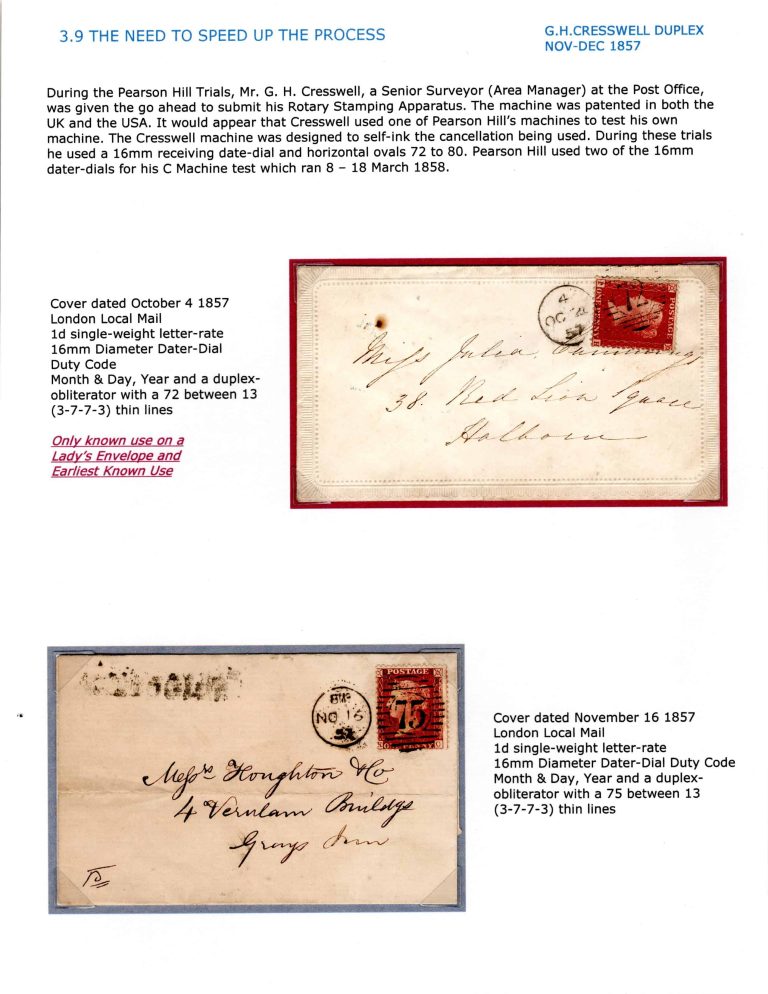 3.9 THE NEED TO SPEED UP THE PROCESS
G.H.CRESSWELL DUPLEX
NOV-DEC 1857
During the Pearson Hill Trials, Mr. G. H. Cresswell, a Senior Surveyor (Area Manager) at the Post Office,
was given the go ahead to submit his Rotary Stamping Apparatus. The machine was patented in both the
UK and the USA. It would appear that Cresswell used one of Pearson Hill's machines to test his own
machine. The Cresswell machine was designed to self-ink the cancellation being used. During these trials
he used a 16mm receiving date-dial and horizontal ovals 72 to 80. Pearson Hill used two of the 16mm
dater-dials for his C Machine test which ran 8 – 18 March 1858.
Cover dated October 4 1857
London Local Mail
1d single-weight letter-rate
16mm Diameter Dater-Dial
Duty Code
Month & Day, Year and a duplex-
obliterator with a 72 between 13
(3-7-7-3) thin lines
Only known use on a
Lady's Envelope and
Earliest Known Use
4
OC
57
72
POSTAGE
ONE PENNY
Miss Julia
38. Red Lion Square
Holborn
NO 16
57
POSTAGE
75
Messrs Houghton & Co
4 Verulam Buildgs
Grays Inn
Cover dated November 16 1857
London Local Mail
1d single-weight letter-rate
16mm Diameter Dater-Dial Duty Code
Month & Day, Year and a duplex-
obliterator with a 75 between 13
(3-7-7-3) thin lines